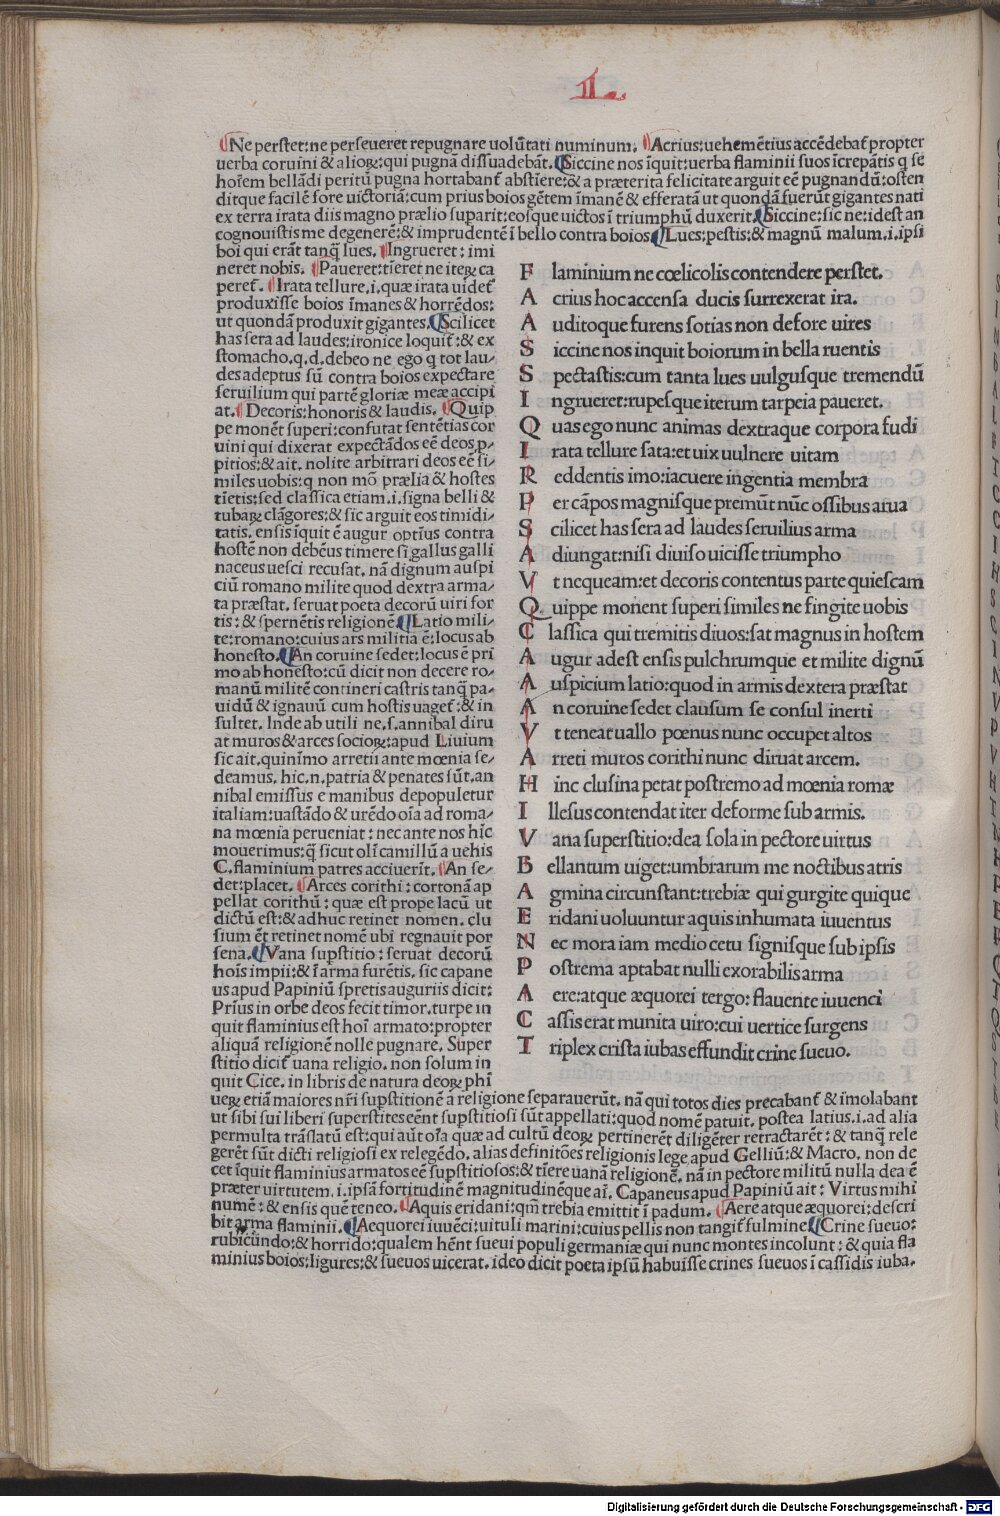 II.
Ne perstet: ne perseueret repugnare uolũtati numinum. Acrius: uehemẽtius accẽdebat̃ propter
uerba coruini & alioꝝ: qui pugnã dissuadebãt. Siccine nos ĩquit: uerba flaminii suos ĩcrepãtis q se
hoĩem bellãdi peritũ pugna hortabant̃ abstĩere: & a præterita felicitate arguit eẽ pugnandũ: osten
ditque facilẽ fore uictoriã: cum prius boios gẽtem ĩmanẽ & efferatã ut quondã fuerũt gigantes nati
ex terra irata diis magno prælio suparit: eosque uictos ĩ triumphũ duxerit. Siccine: sic ne: idest an
cognouistis me degenerẽ: & imprudentẽ ĩ bello contra boios. Lues: pestis: & magnũ malum .i. ipsi
boi qui erãt tanq̃ lues. Ingrueret: imi
neret nobis. Paueret: tĩeret ne iteꝝ ca
peret̃. Irata tellure .i. quæ irata uidet̃
produxisse boios ĩmanes & horrẽdos:
ut quondã produxit gigantes. Scilicet
has sera ad laudes: ironice loquit̃: & ex
stomacho. q. d. debeo ne ego q tot lau/
des adeptus sũ contra boios expectare
seruilium qui partẽ gloriæ meæ accipi
at. Decoris: honoris & laudis. Quip
pe monẽt superi: confutat sentẽtias cor
uini qui dixerat expectãdos eẽ deos p/
pitios: & ait. nolite arbitrari deos eẽ si/
miles uobis: q non mõ prælia & hostes
tĩetis: sed classica etiam .i. signa belli &
tubaꝝ clãgores: & sic arguit eos timidi/
tatis. ensis ĩquit ẽ augur optĩus contra
hostẽ non debẽus timere si gallus galli
naceus uesci recusat. nã dignum auspi
ciũ romano milite quod dextra arma/
ta præstat. seruat poeta decorũ uiri for
tis: & spernẽtis religionẽ. Latio mili/
te: romano: cuius ars militia ẽ: locus ab
honesto. An coruine sedet: locus ẽ pri
mo ab honesto: cũ dicit non decere ro/
manũ militẽ contineri castris tanq̃ pa/
uidũ & ignauũ cum hostis uaget̃: & in
sultet. Inde ab utili ne .s. annibal diru
at muros & arces socioꝝ: apud Liuium
sic ait. quinĩmo arretii ante mœnia se/
deamus. hic .n. patria & penates sũt. an
nibal emissus e manibus depopuletur
italiam: uastãdo & urẽdo oĩa ad roma/
na mœnia perueniat: nec ante nos hĩc
mouerimus: q̃ sicut olĩ camillũ a uehis
C. flaminium patres acciuerĩt. An se/
det: placet. Arces corithi: cortonã ap
pellat corithũ: quæ est prope lacũ ut
dictũ est: & adhuc retinet nomen. clu
sium ẽt retinet nomẽ ubi regnauit por
sena. Vana supstitio: seruat decorũ
hoĩs impii: & ĩ arma furẽtis. sic capane
us apud Papiniũ spretis auguriis dicit:
Prius in orbe deos fecit timor. turpe in
quit flaminius est hoĩ armato: propter
aliquã religionẽ nolle pugnare. Super
stitio dicit̃ uana religio. non solum in
quit Cice. in libris de natura deoꝝ phĩ
ueꝝ etiã maiores nr̃i supstitionẽ a religione separauerũt. nã qui totos dies precabant̃ & ĩmolabant
ut sibi sui liberi superstites eẽnt supstitiosi sũt appellati: quod nomẽ patuit. postea latius .i. ad alia
permulta trãslatũ est: qui aũt oĩa quæ ad cultũ deoꝝ pertinerẽt diligẽter retractarẽt: & tanq̃ rele
gerẽt sũt dicti religiosi ex relegẽdo. alias definitões religionis lege apud Gelliũ: & Macro. non de
cet ĩquit flaminius armatos eẽ supstitiosos: & tĩere uanã religionẽ. nã in pectore militũ nulla dea ẽ
præter uirtutem .i. ipsã fortitudinẽ magnitudinẽque aĩ. Capaneus apud Papiniũ ait: Virtus mihi
numẽ: & ensis quẽ teneo. Aquis eridani: qm̃ trebia emittit ĩ padum. Aere atque æquorei: descri
bit arma flaminii. Aequorei iuuẽci: uituli marini: cuius pellis non tangit̃ fulmine. Crine sueuo:
rubicũndo: & horrido: qualem hẽnt sueui populi germaniæ qui nunc montes incolunt: & quia fla
minius boios: ligures: & sueuos uicerat. ideo dicit poeta ipsũ habuisse crines sueuos ĩ cassidis iuba.
F laminium ne cœlicolis contendere perstet.
A crius hoc accensa ducis surrexerat ira.
A uditoque furens sotias non defore uires
S iccine nos inquit boiorum in bella ruentis
S pectastis: cum tanta lues uulgusque tremendũ
I ngrueret: rupesque iterum tarpeia paueret.
Q uas ego nunc animas dextraque corpora fudi
I rata tellure sata: et uix uulnere uitam
R eddentis imo: iacuere ingentia membra
P er cãpos magnisque premũt nũc ossibus arua
S cilicet has sera ad laudes seruilius arma
A diungat: nisi diuiso uicisse triumpho
V t nequeam: et decoris contentus parte quiescam
Q uippe monent superi similes ne fingite uobis
C lassica qui tremitis diuos: sat magnus in hostem
A ugur adest ensis pulchrumque et milite dignũ
A uspicium latio: quod in armis dextera præstat
A n coruine sedet clausum se consul inerti
V t teneat uallo pœnus nunc occupet altos
A rreti muros corithi nunc diruat arcem.
H inc clusina petat postremo ad mœnia romæ
I llesus contendat iter deforme sub armis.
V ana superstitio: dea sola in pectore uirtus
B ellantum uiget: umbrarum me noctibus atris
A gmina circunstant: trebiæ qui gurgite quique
E ridani uoluuntur aquis inhumata iuuentus
N ec mora iam medio cetu signisque sub ipsis
P ostrema aptabat nulli exorabilis arma
A ere: atque æquorei tergo: flauente iuuenci
C assis erat munita uiro: cui uertice surgens
T riplex crista iubas effundit crine sueuo.
Digitalisierung gefördert durch die Deutsche Forschungsgemeinschaft - DFG